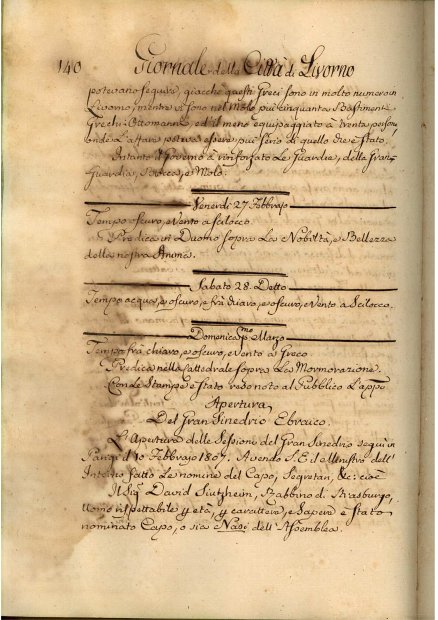 140 Giornale della Città di Livorno
potevano seguire, giacchè questi Greci sono in molto numero in
Livorno, mentre vi sono nel Molo più cinquanta Bastimenti
Grechi-Ottomanni ed il meno equipaggiato à trenta persone,
onde l'affare poteva essere più serio di quello che è stato.
Intanto il Governo à rinforzato le Guardie, della Gran
Guardia, Bocca, e Molo.
Venerdì 27 Febbrajo
Tempo oscuro, e Vento a Scilocco.
Predica in Duomo sopra La Nobiltà, e Bellezza
della nostra Anima.
Sabato 28. Detto
Tempo acquoso, e oscuro, e frà chiaro, e oscuro, e Vento a Scilocco.
Domenica pmo Marzo
Tempo frà chiaro, e oscuro, e Vento a Greco
Predica nella Cattedrale sopra La Mormorazione.
Con Le Stampe è stato reso noto al Pubblico L'app.
Apertura
Del Gran Sinedrio Ebraico.
L'Apertura delle Sessioni del Gran Sinedrio seguì in
Parigi il 10 Febbrajo 1807. Avendo S.E. il Ministro dell'
Interno fatto le nomine del Capo, Segretari, &c: cioè
Il Sig David Sintzheim, Rabbino di Strasburgo,
Uomo rispettabile p età, p carattere, e Sapere è stato
nominato Capo, o sia Nasi dell'Assemblea.